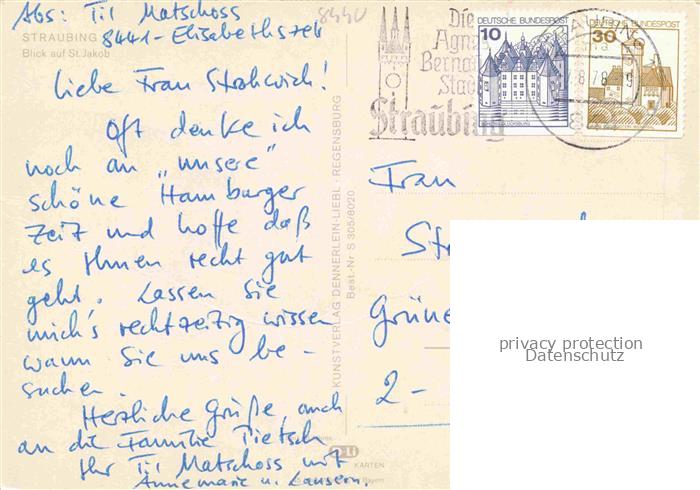 Abs: Til Matschoss
8441-Elisabethszell
STRAUBING
Blick auf St. Jakob
8440
Liebe Frau Strohwich!
Oft denke ich
noch an „unsere"
schöne Hamburger
Zeit und hoffe daß
es Ihnen recht gut
geht. Lassen Sie
mich's rechtzeitig wissen
wann Sie uns be-
suchen.
Herzliche Grüße, auch
an die Familie Pietsch
Ihr Til Matschoss mit
Annemarie u.
KUNSTVERLAG DENNERLEIN-LIEBL · REGENSBURG
Best.-Nr S 305/8020
KARTEN
Die
Agnes
Bernau
Stadt
Straubing
DEUTSCHE BUNDESPOST
10
DEUTSCHE BUNDESPOST
30
8.78
Frau
St
Grüne
2-
privacy protection
Datenschutz